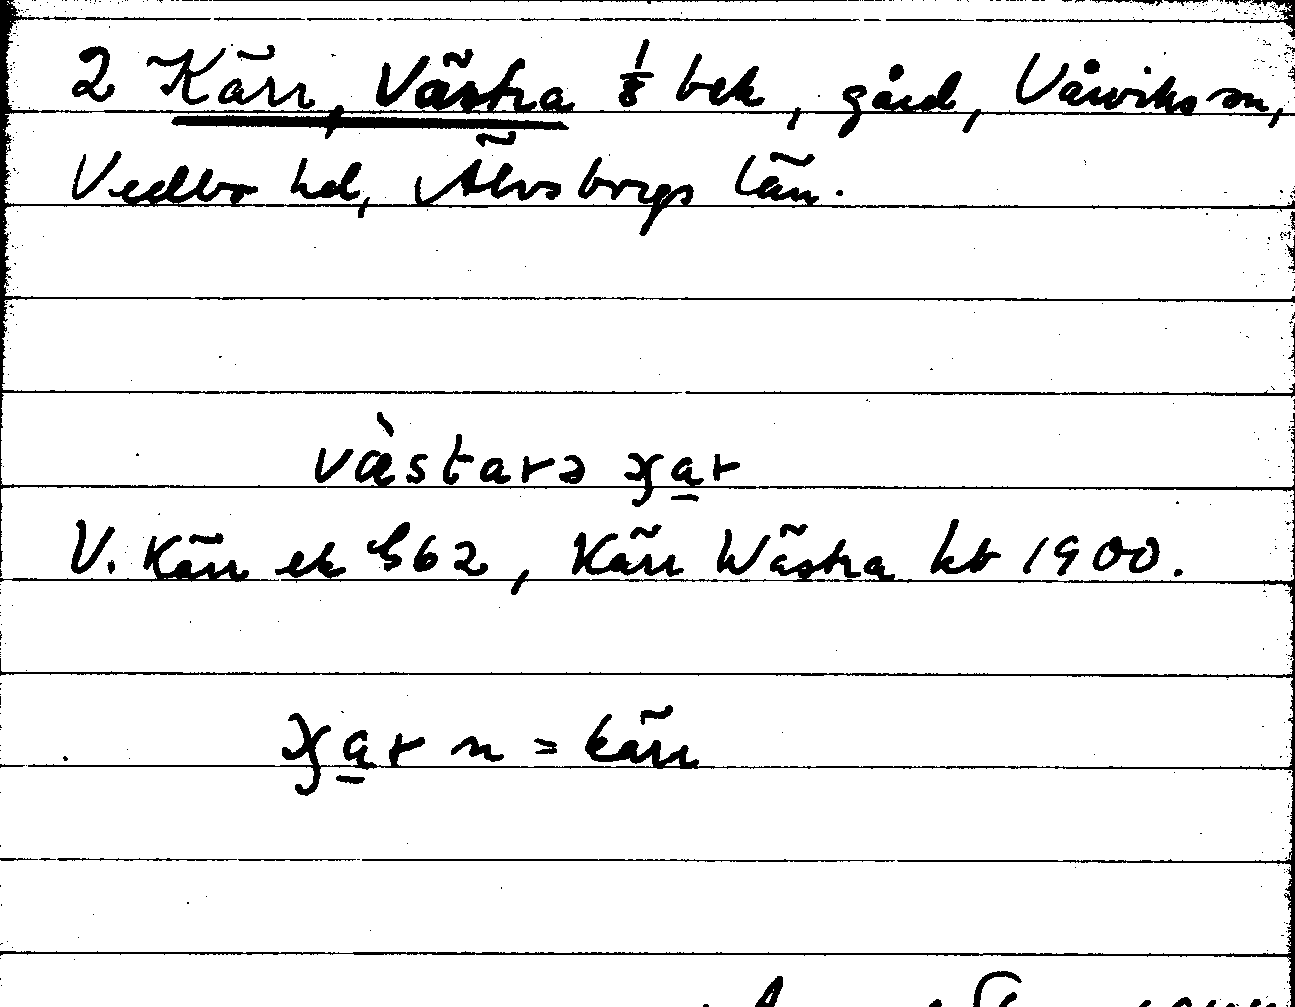 2 Kärr, Västra 1/8 bek, gård, Vårviks sn,
Vedbo hd, Älvsborgs län.
væ̀starə ɣa̠r
V. Kärr ek 862, Kärr Wästra kb 1900.
ɣa̠r n = kärr